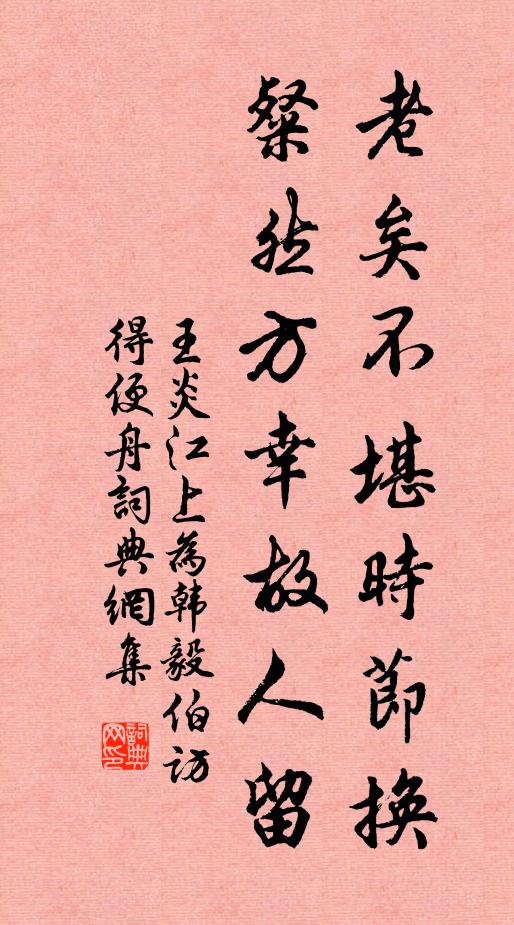 老矣不堪時節換
粲然方幸故人留
王炎江上為韩毅伯訪
得便舟詞典網集
詞典网印